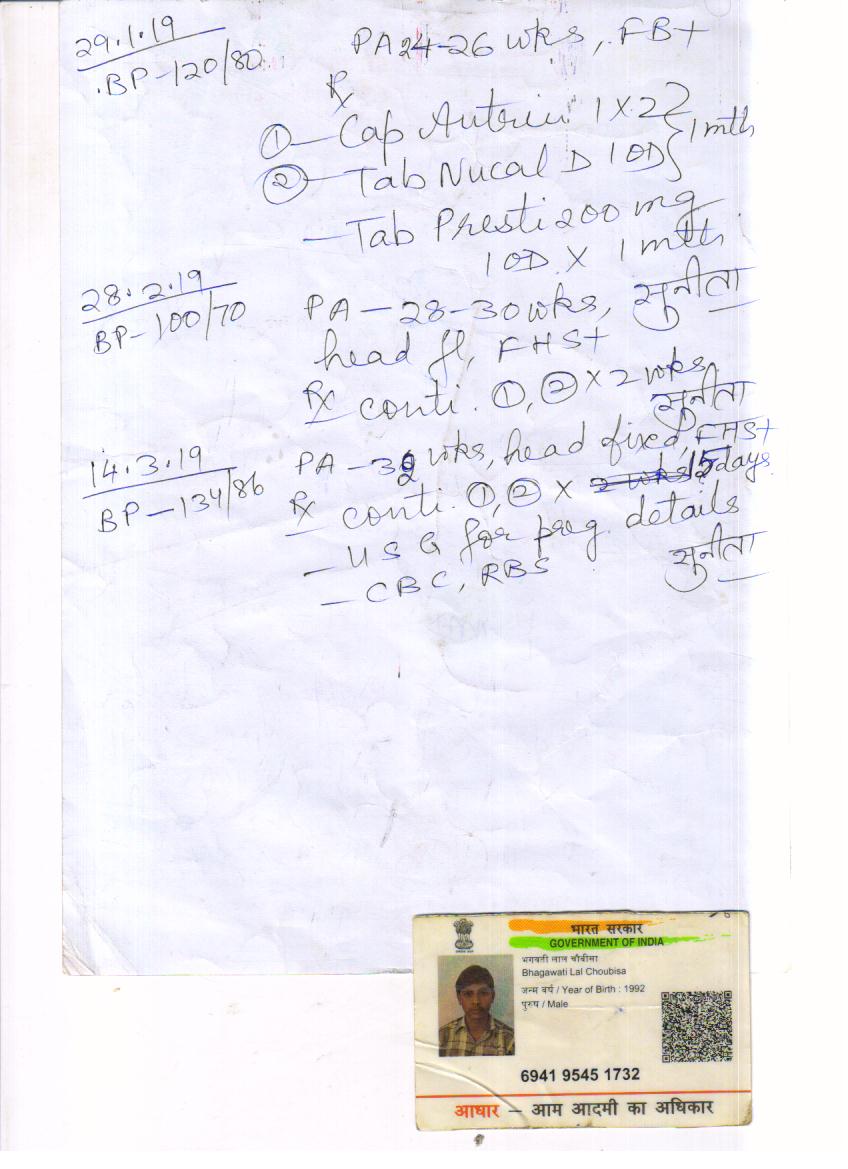 29.1.19
BP-120/80
PA 24-26 wks, FB+
Rx
① - Cap Auterin 1 X 2 } 1 mth
② - Tab Nucal D 1 OD
- Tab Presti 200 mg
1 OD X 1 mth
सुनीता
28.2.19
BP-100/70
PA - 28-30 wks,
head fl, FHS+
Rx conti. ①, ② X 2 wks
सुनीता
14.3.19
BP-134/86
PA - 32 wks, head fixed, FHS+
Rx conti. ①, ② X 15 days
- USG for preg. details
- CBC, RBS
सुनीता
भारत सरकार
GOVERNMENT OF INDIA
भगवती लाल चौबीसा
Bhagawati Lal Choubisa
जन्म वर्ष / Year of Birth : 1992
पुरुष / Male
6941 9545 1732
आधार - आम आदमी का अधिकार